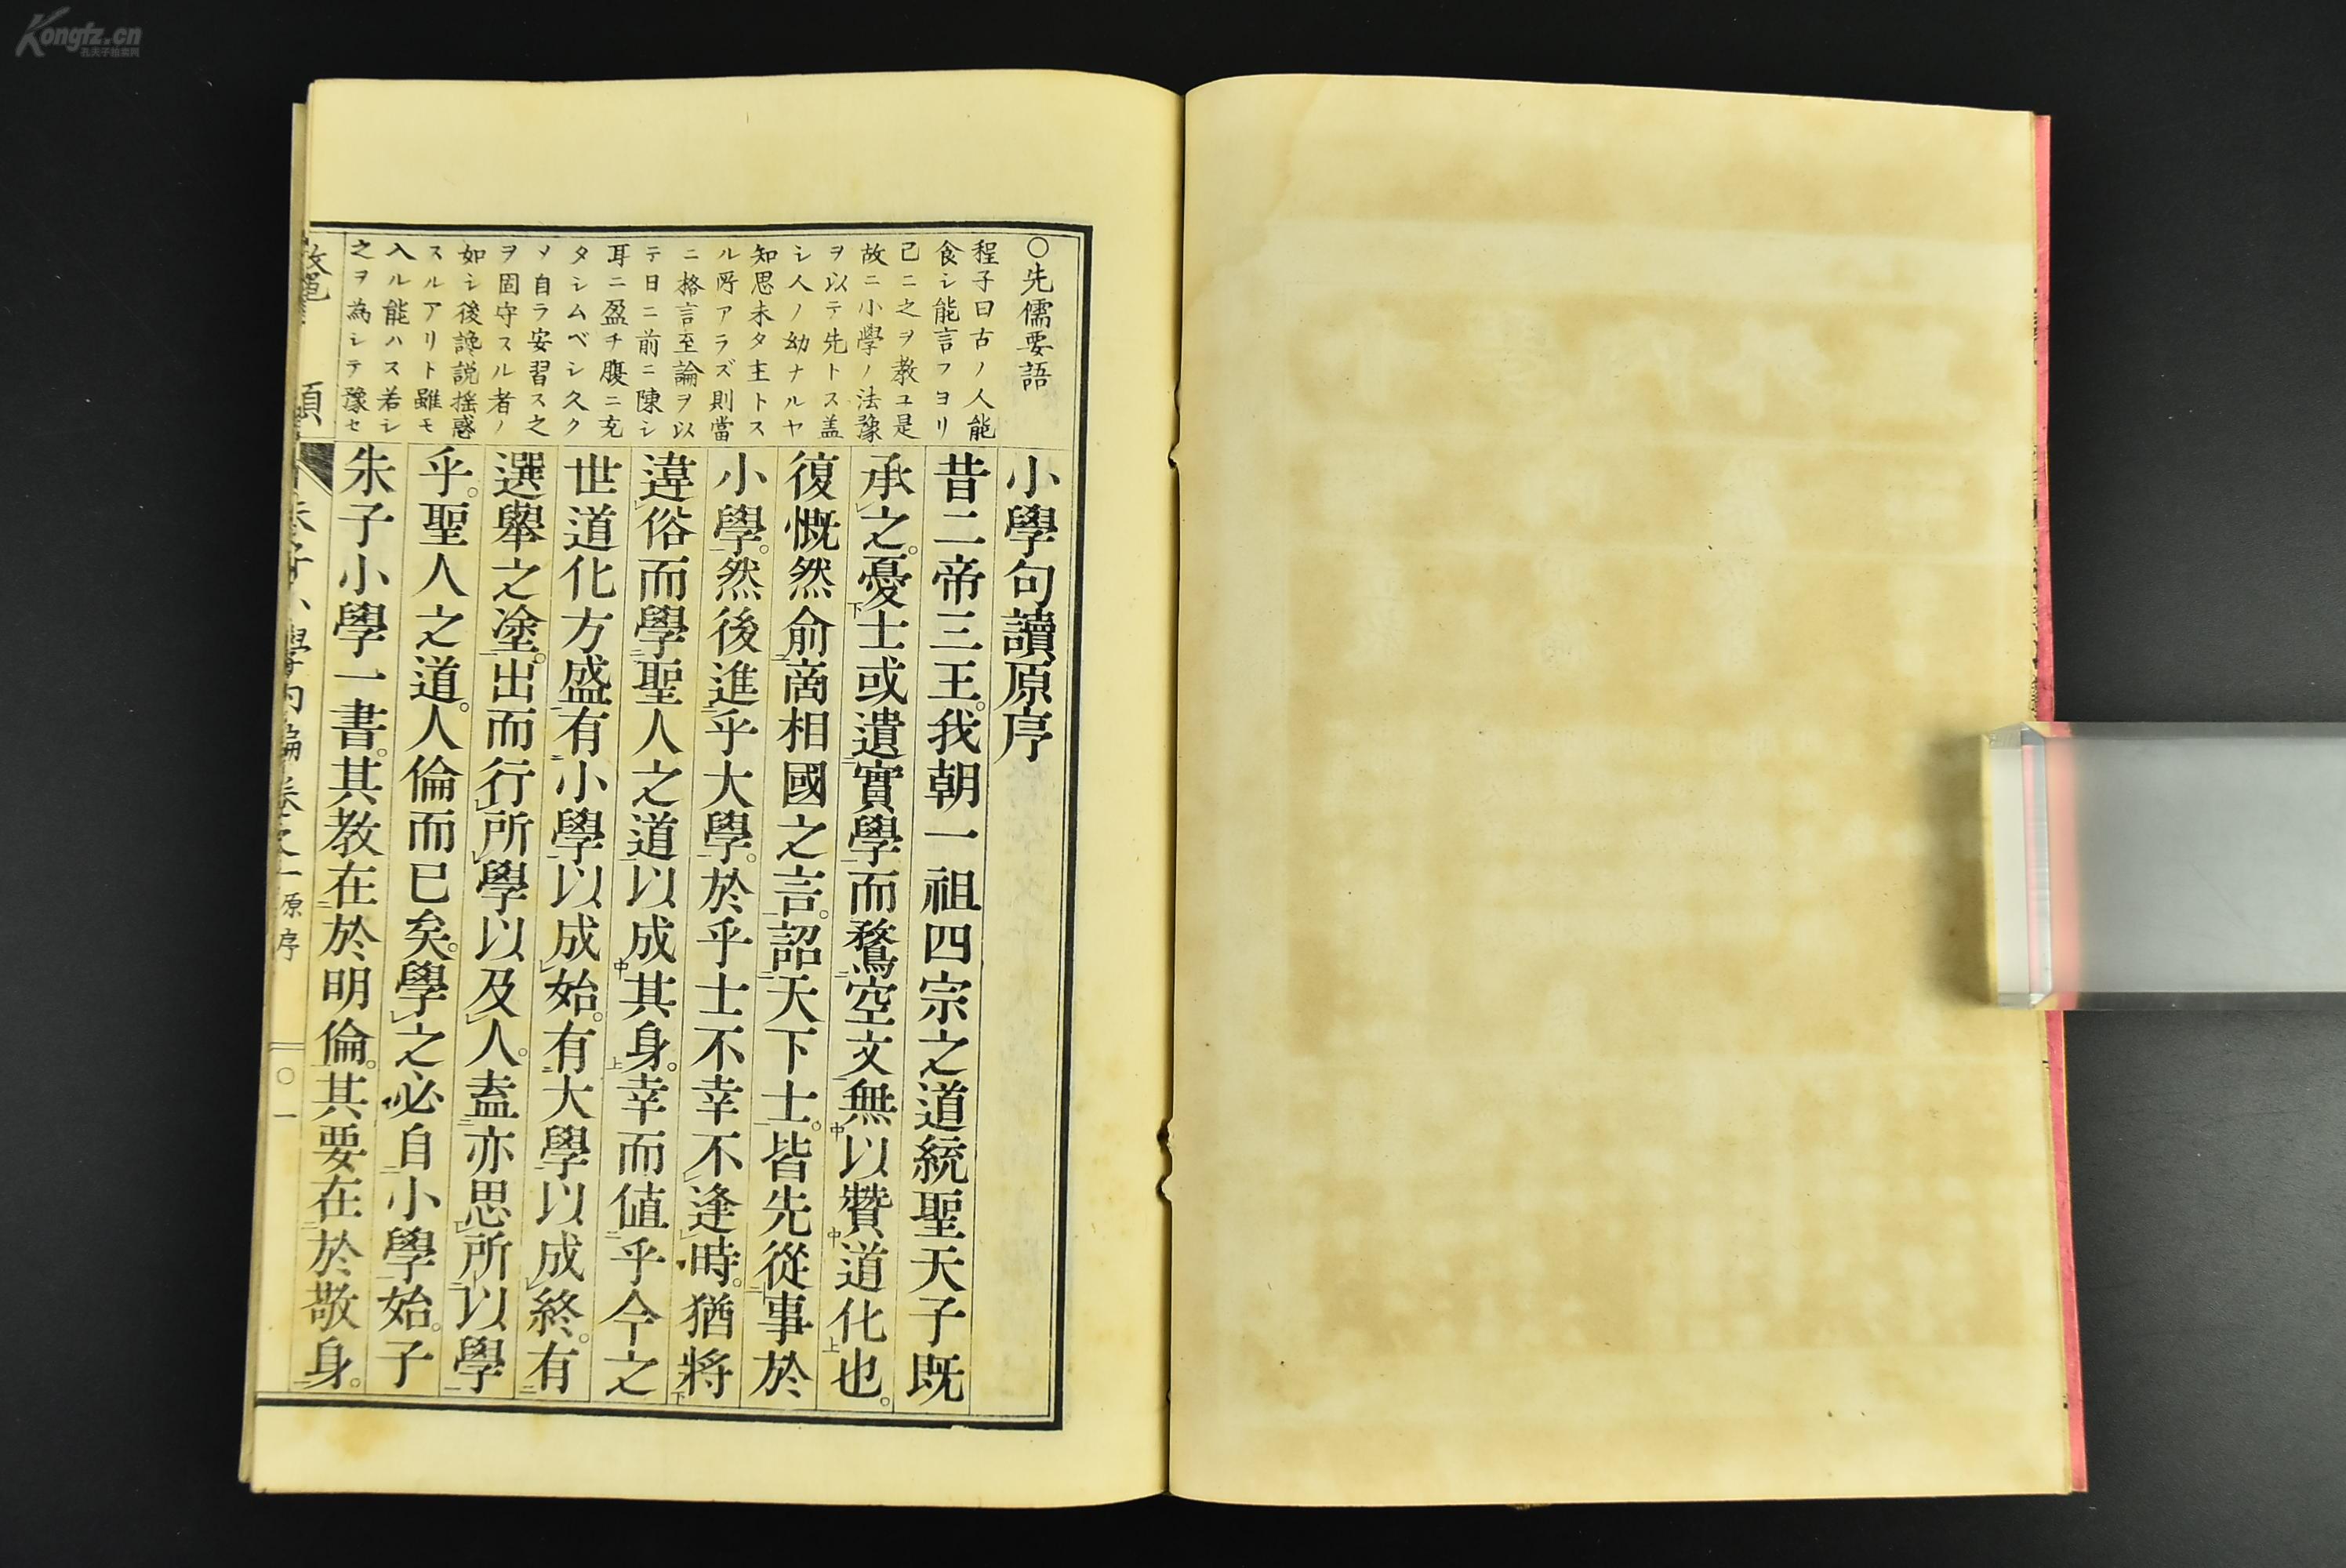 Kongfz.cn
孔夫子拍卖网
〇先儒要語
程子曰古ノ人能
食シ能言フヨリ
已ニ之ヲ教ユ是
故ニ小學ノ法豫
ヲ以テ先トス盖
シ人ノ幼ナルヤ
知思未タ主トス
ル所アラズ則當
ニ格言至論ヲ以
テ日ニ前ニ陳シ
耳ニ盈チ腹ニ充
タシムベシ久ク
メ自ラ安習ス之
ヲ固守スル者ノ
如シ後讒説揺惑
スルアリト雖モ
入ル能ハス若シ
之ヲ為シテ豫セ
小學句讀原序
昔二帝三王。我朝一祖四宗之道統聖天子既
承之。憂下士或遺二實學一而騖二空文一無中以贊中道化上也。
復慨然俞二啇相國之言一。詔二天下士一。皆先從二事於
小學一。然後進二乎大學一。於乎士不幸不逢時。猶將下
違俗而學二聖人之道一以成中其身上。幸而値二乎今之
世道化方盛一有二小學一以成始。有二大學一以成終。有二
選舉之塗一。出而行所學以及人。盍二亦思所二以學一
乎。聖人之道。人倫而已矣。學之必自二小學一始。子
朱子小學一書。其教在二於明倫一。其要在二於敬身一。
原序
〇一